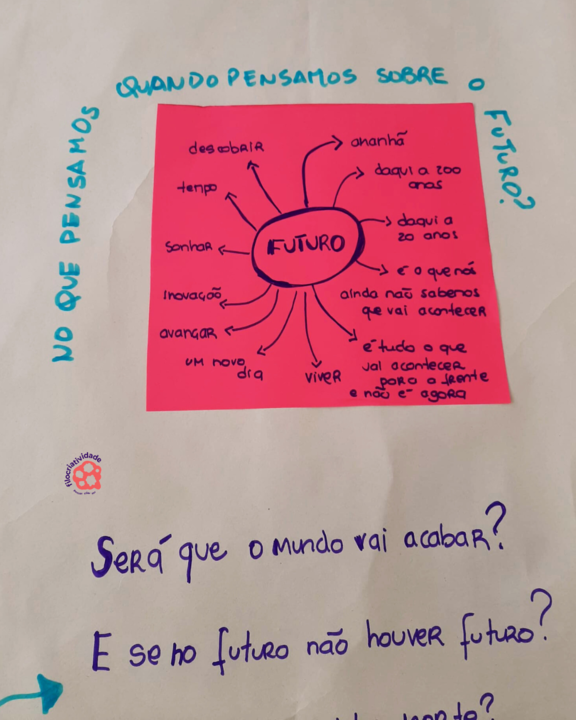 NO QUE PENSAMOS QUANDO PENSAMOS SOBRE O FUTURO?
FUTURO
amanhã
daqui a 200
anos
daqui a
20 anos
é o que nós
ainda não sabemos
que vai acontecer
é tudo o que
vai acontecer
para a frente
e não é agora
viver
um novo
dia
avançar
inovação
sonhar
tempo
descobrir
filocriatividade
Será que o mundo vai acabar?
E se no futuro não houver futuro?